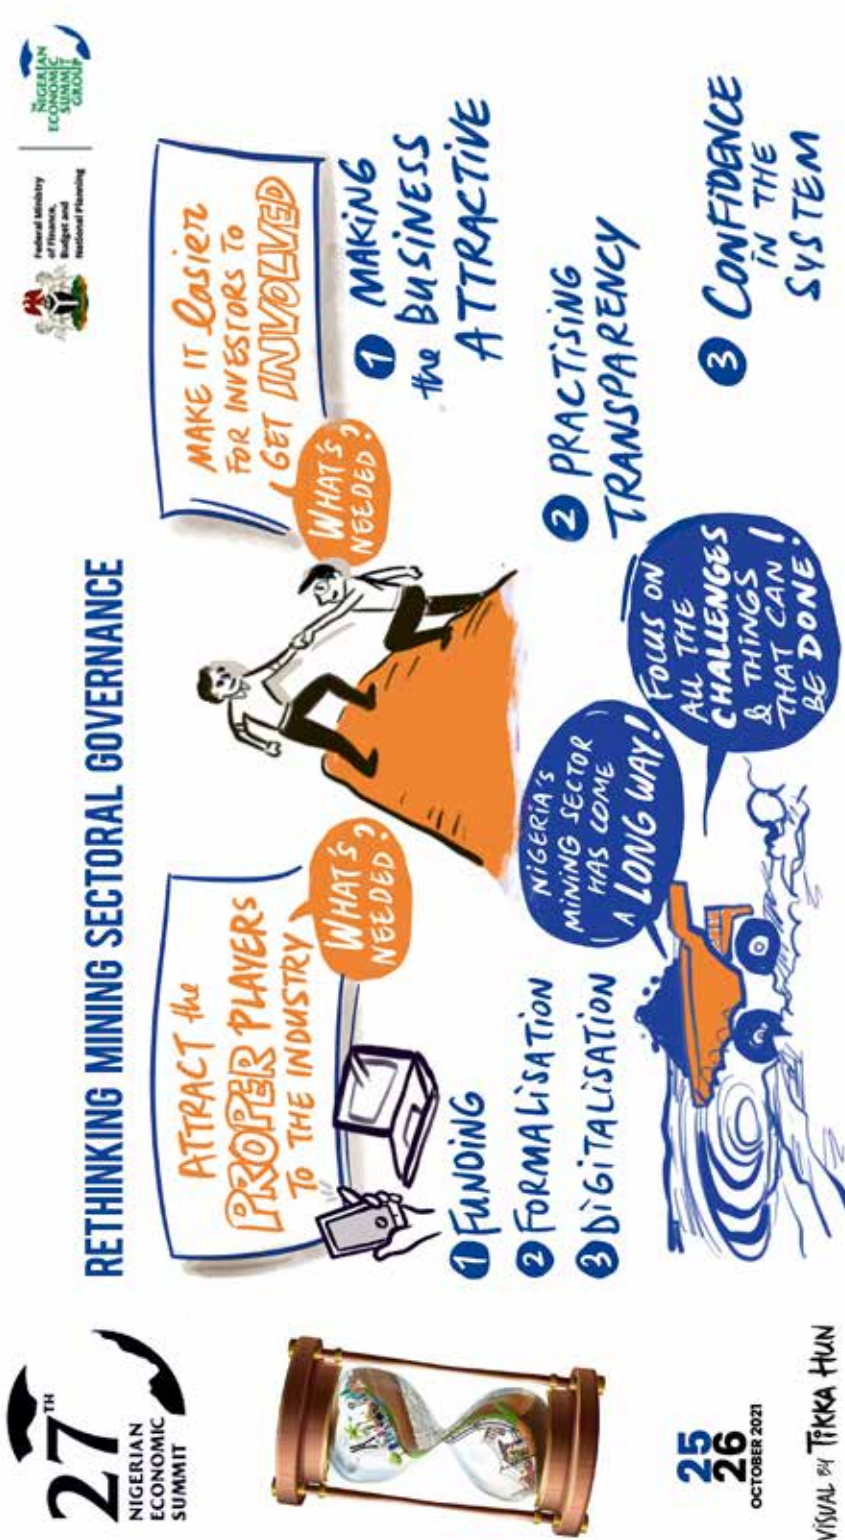 27TH
NIGERIAN
ECONOMIC
SUMMIT
25
26
OCTOBER 2021
VISUAL BY TIKKA HUN
RETHINKING MINING SECTORAL GOVERNANCE
Federal Ministry
of Finance,
Budget and
National Planning
THE
NIGERIAN
ECONOMIC
SUMMIT
GROUP
ATTRACT the
PROPER PLAYERS
TO THE INDUSTRY
WHAT'S
NEEDED?
1 FUNDING
2 FORMALISATION
3 DIGITALISATION
NIGERIA'S
MINING SECTOR
HAS COME
A LONG WAY!
FOCUS ON
ALL THE
CHALLENGES
& THINGS
THAT CAN
BE DONE!
MAKE IT Easier
FOR INVESTORS TO
GET INVOLVED
WHAT'S
NEEDED?
1 MAKING
the BUSINESS
ATTRACTIVE
2 PRACTISING
TRANSPARENCY
3 CONFIDENCE
IN THE
SYSTEM